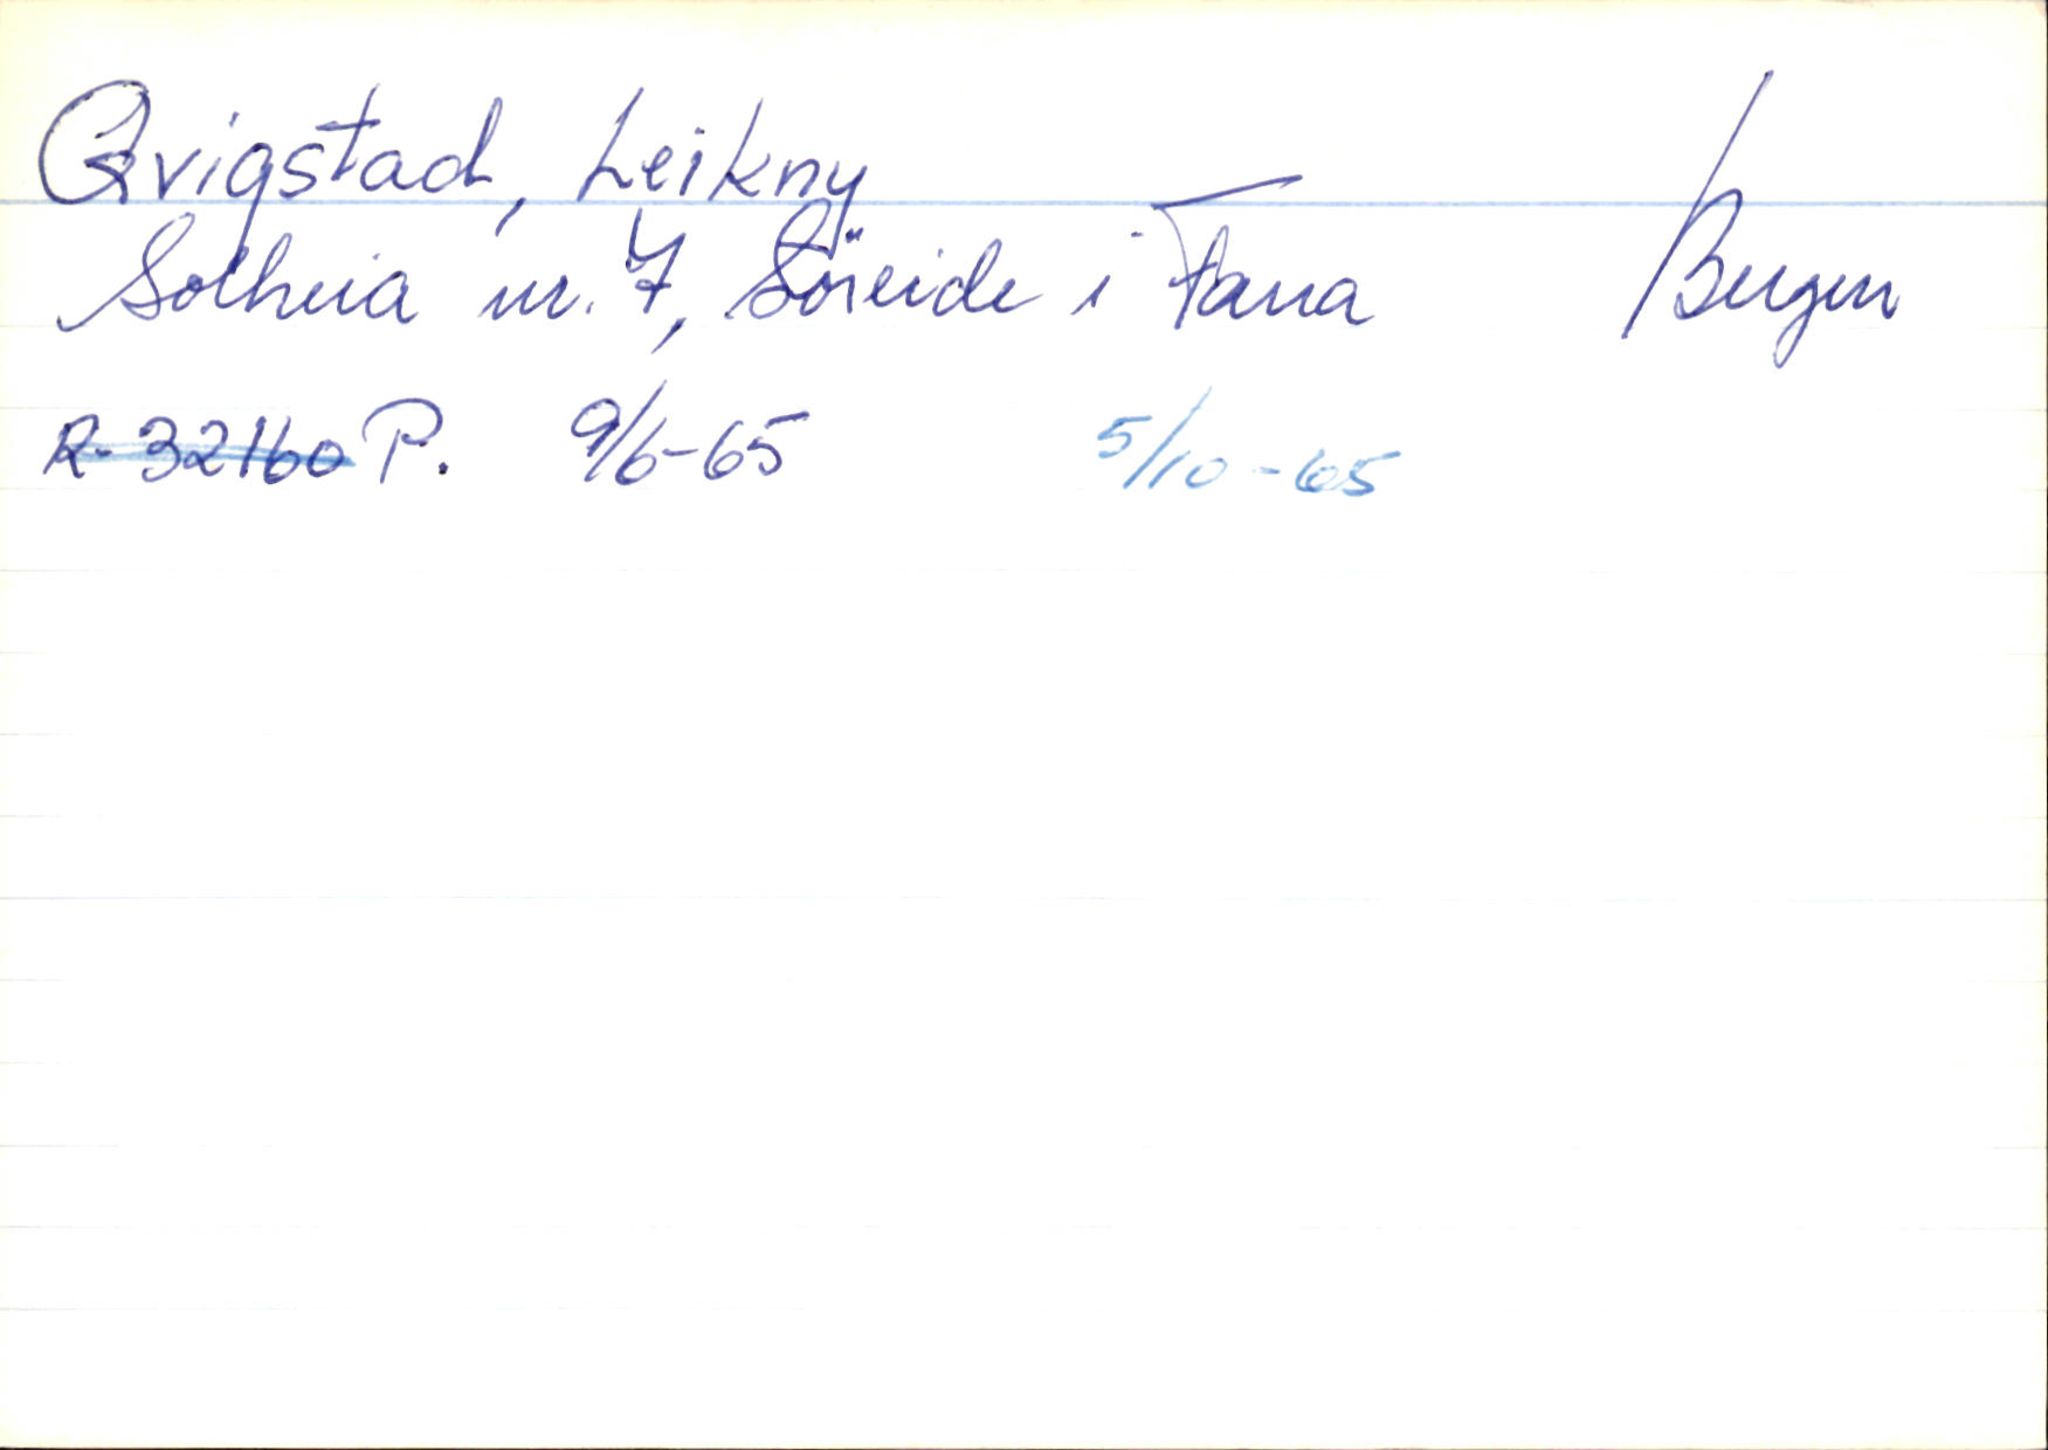 Qvigstad, Leikny
Solheia nr. 7, Söreide i Fana Bergen
R-32160 P. 9/6-65 5/10-65